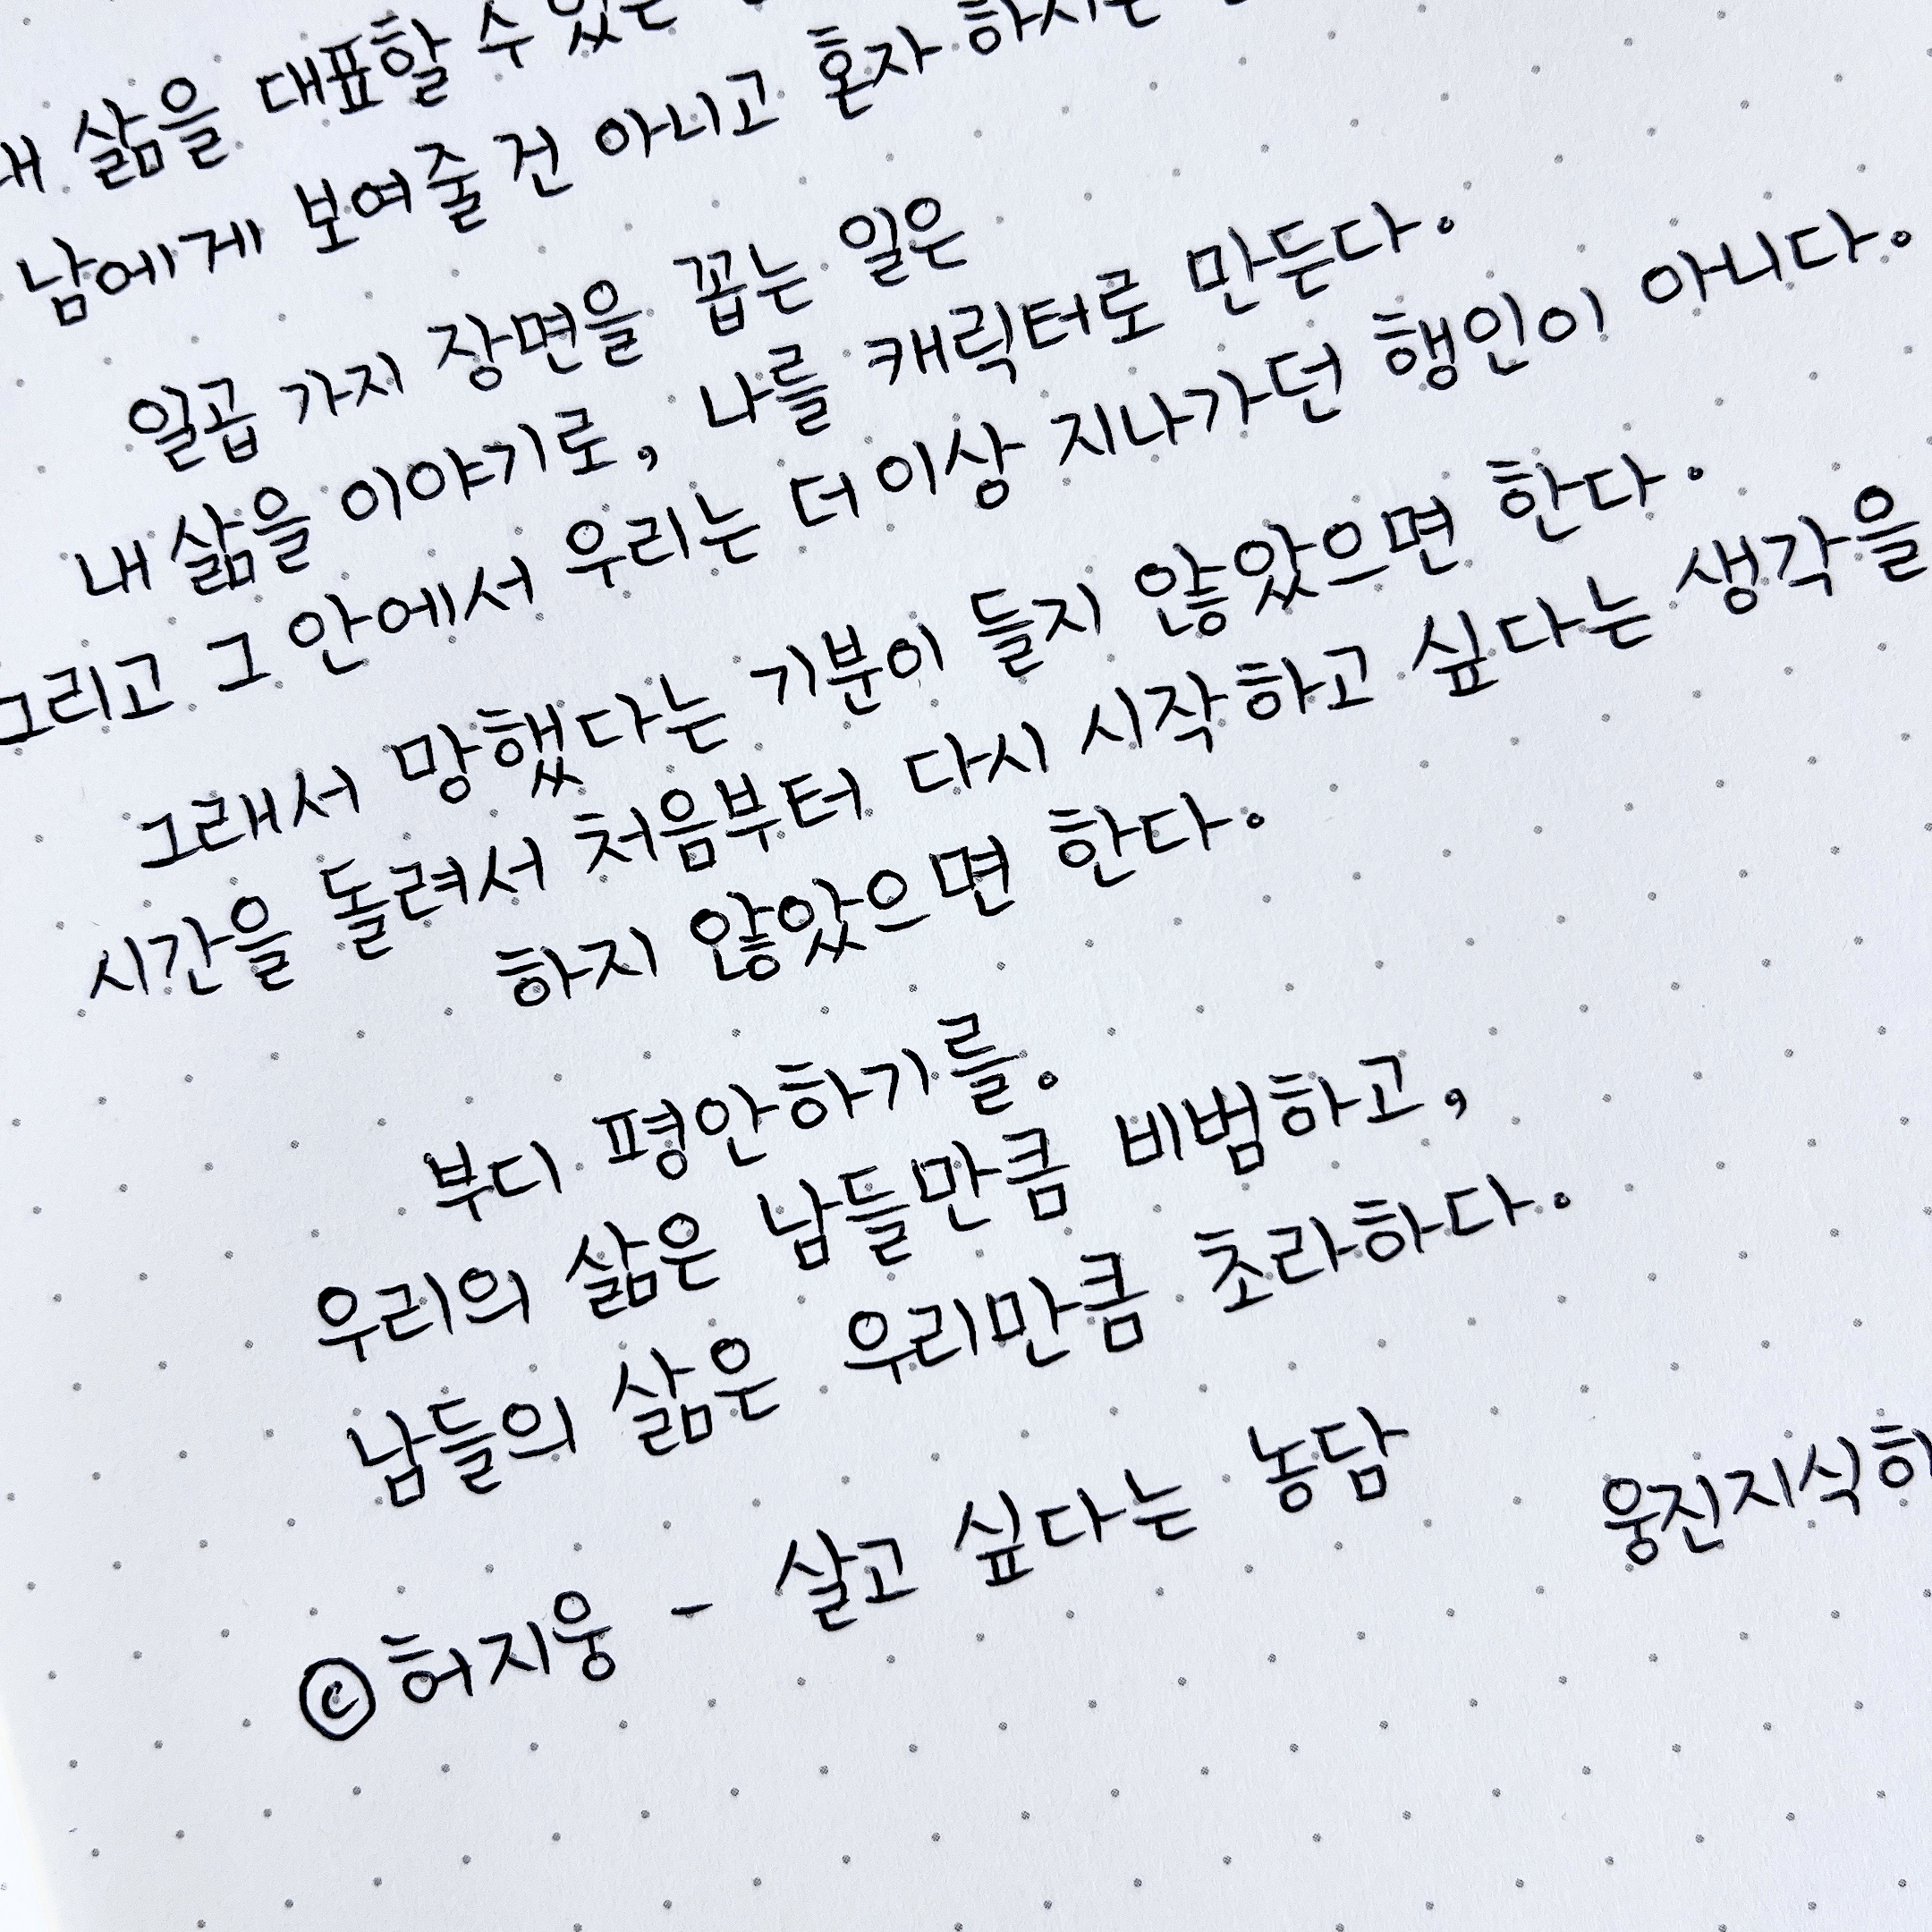 내 삶을 대표할 수 있는
남에게 보여줄 건 아니고 혼자
일곱 가지 장면을 꼽는 일은
내 삶을 이야기로, 나를 캐릭터로 만든다.
그리고 그 안에서 우리는 더 이상 지나가던 행인이 아니다.
그래서 망했다는 기분이 들지 않았으면 한다.
시간을 돌려서 처음부터 다시 시작하고 싶다는 생각을
하지 않았으면 한다.
부디 평안하기를.
우리의 삶은 남들만큼 비범하고,
남들의 삶은 우리만큼 초라하다.
©허지웅 - 살고 싶다는 농담 웅진지식하